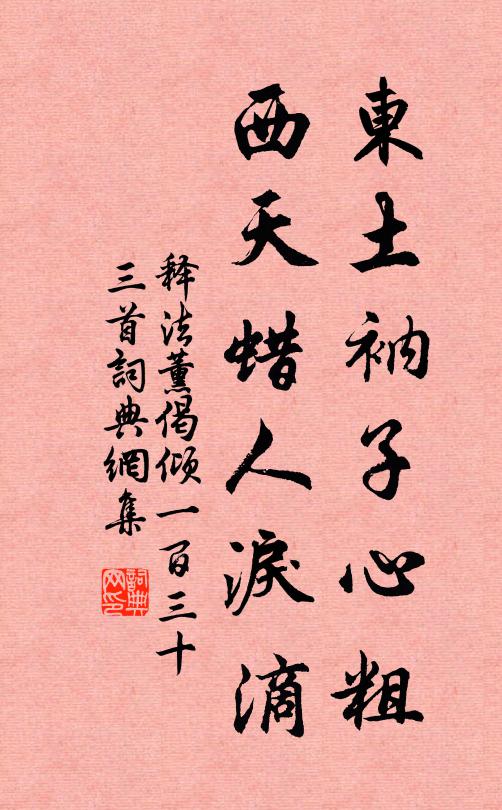 東土衲子心粗
西天蜡人淚滴
释法薰偈倾一百三十
三首詞典網集
詞典網印